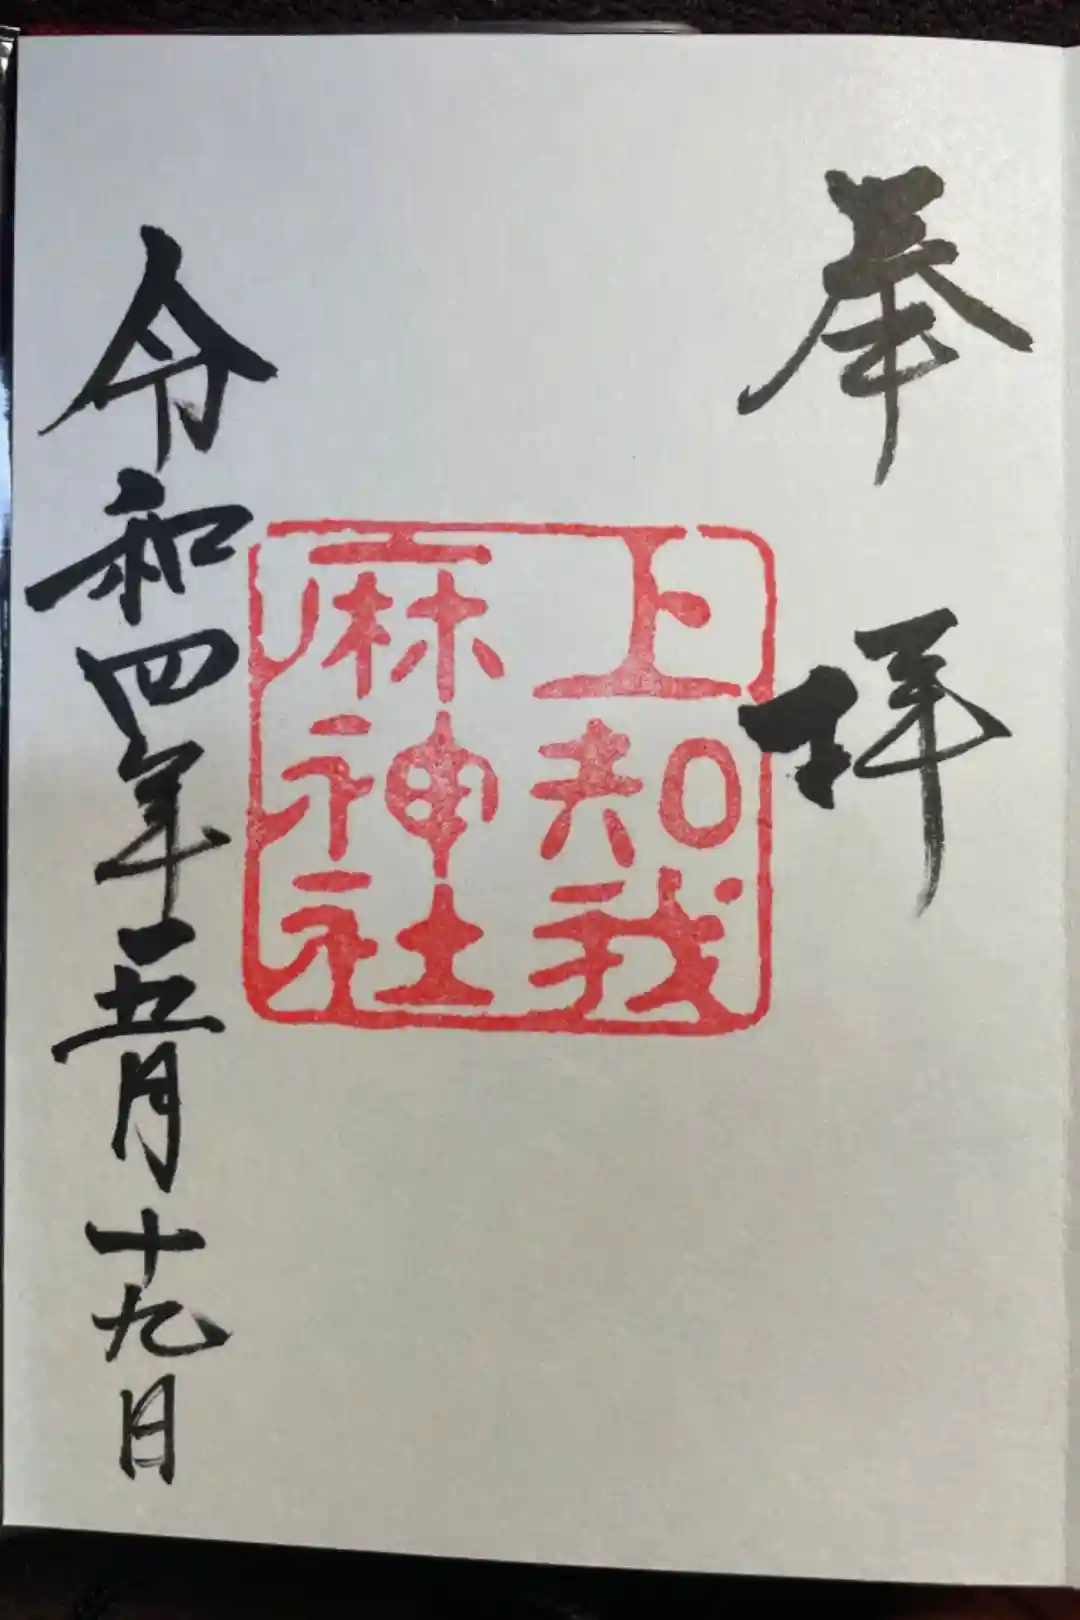 奉拝
上知我
麻神社
令和四年五月十九日